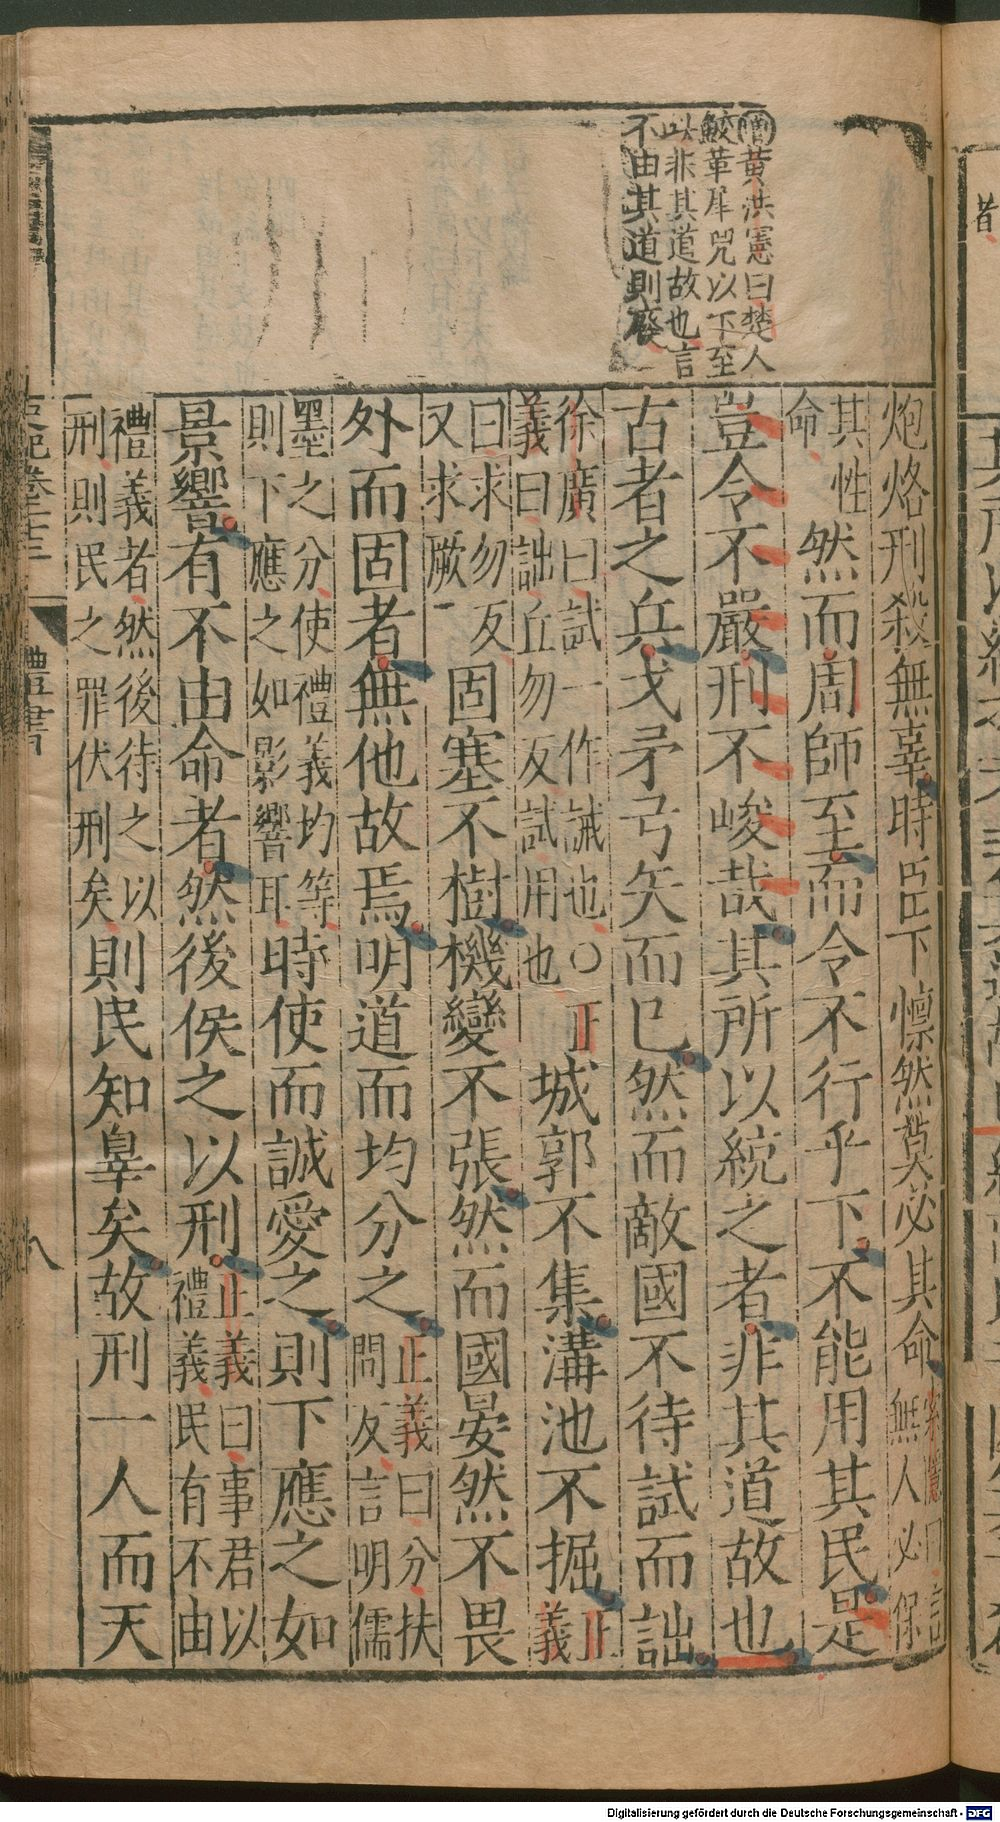 增黃洪憲曰楚人
鮫革犀兕以下至
以非其道故也言
不由其道則廢
炮烙刑殺無辜時臣下懍然莫必其命索隱曰言無人必保
其性命然而周師至而令不行乎下不能用其民是
豈令不嚴刑不峻哉其所以統之者非其道故也
古者之兵戈矛弓矢而已然而敵國不待試而詘
徐廣曰試一作誡也○正義曰詘丘勿反試用也城郭不集溝池不掘正義
曰求勿反又求厥固塞不樹機變不張然而國晏然不畏
外而固者無他故焉明道而均分之正義曰分扶問反言明儒
墨之分使禮義均等則下應之如影響耳時使而誠愛之則下應之如
景響有不由命者然後俟之以刑正義曰事君以禮義民有不由
禮義者然後待之以刑則民之罪伏刑矣則民知辠矣故刑一人而天
史記卷二十三
禮書
八
Digitalisierung gefördert durch die Deutsche Forschungsgemeinschaft - DFG